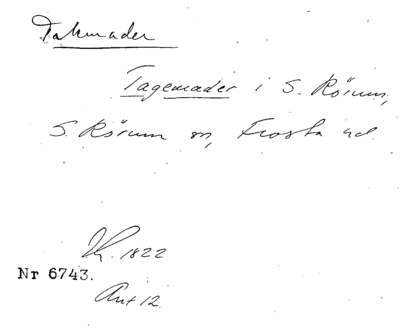 Takmader
Tagemader i S. Rörum,
S. Rörum sn, Frosta hd.
Kr. 1822
Nr 6743.
Ant 12.